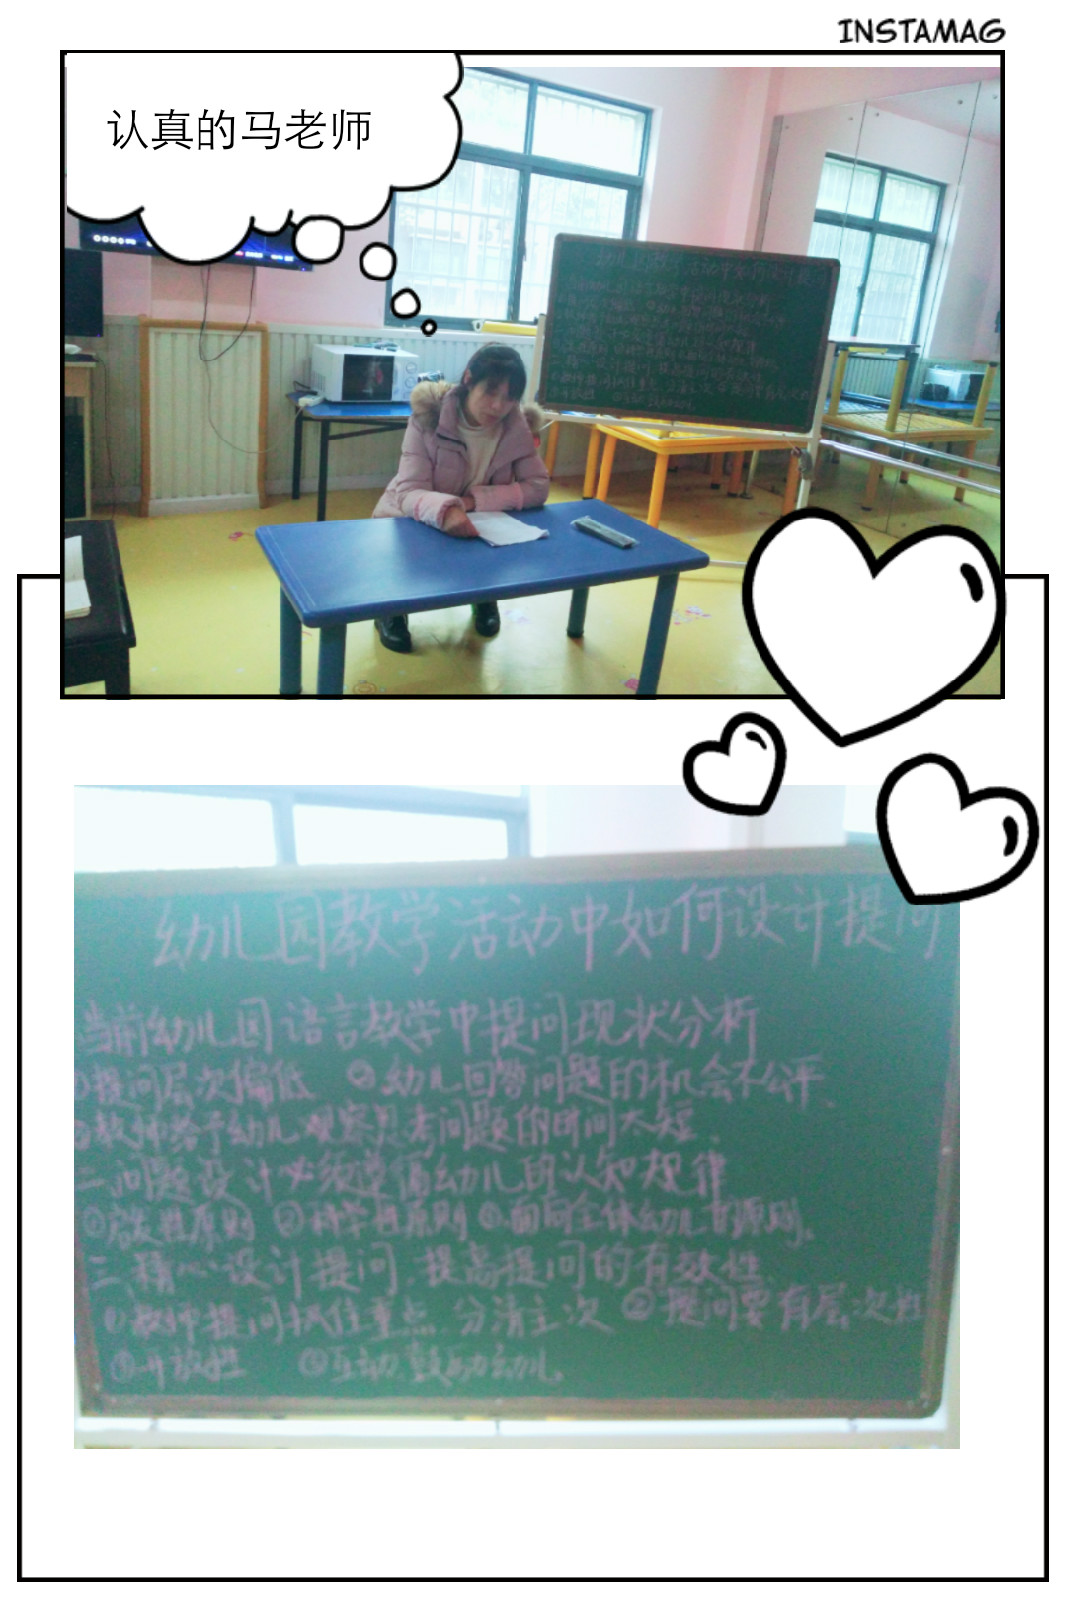 INSTAMAG
认真的马老师
幼儿园教学活动中如何设计提问
当前幼儿园语言教学中提问现状分析
①提问层次偏低 ②幼儿回答问题的机会不公平
③教师给予幼儿观察思考问题的时间太短
二.问题设计必须遵循幼儿的认知规律
①启发性原则 ②科学性原则 ③面向全体幼儿的原则。
三.精心设计提问.提高提问的有效性.
①教师提问抓住重点.分清主次 ②提问要有层次性
③开放性 ④互动.鼓励幼儿。